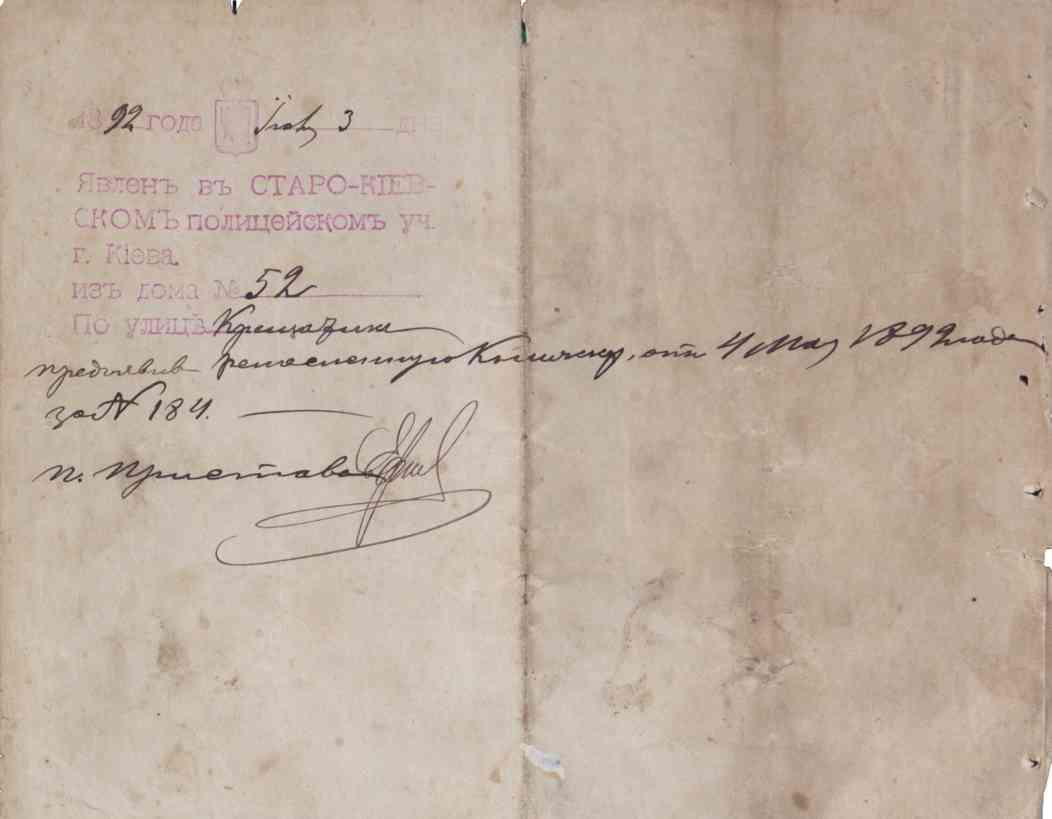 1892 года 3 дня
Явленъ въ СТАРО-КІЕВ-
СКОМЪ полицейскомъ уч.
г. Кіева.
изъ дома № 52
По улицѣ Крещатике
предъявив ремесленную Книжку, отъ 4 Мая 1892 года
за N 184.
п. Пристава